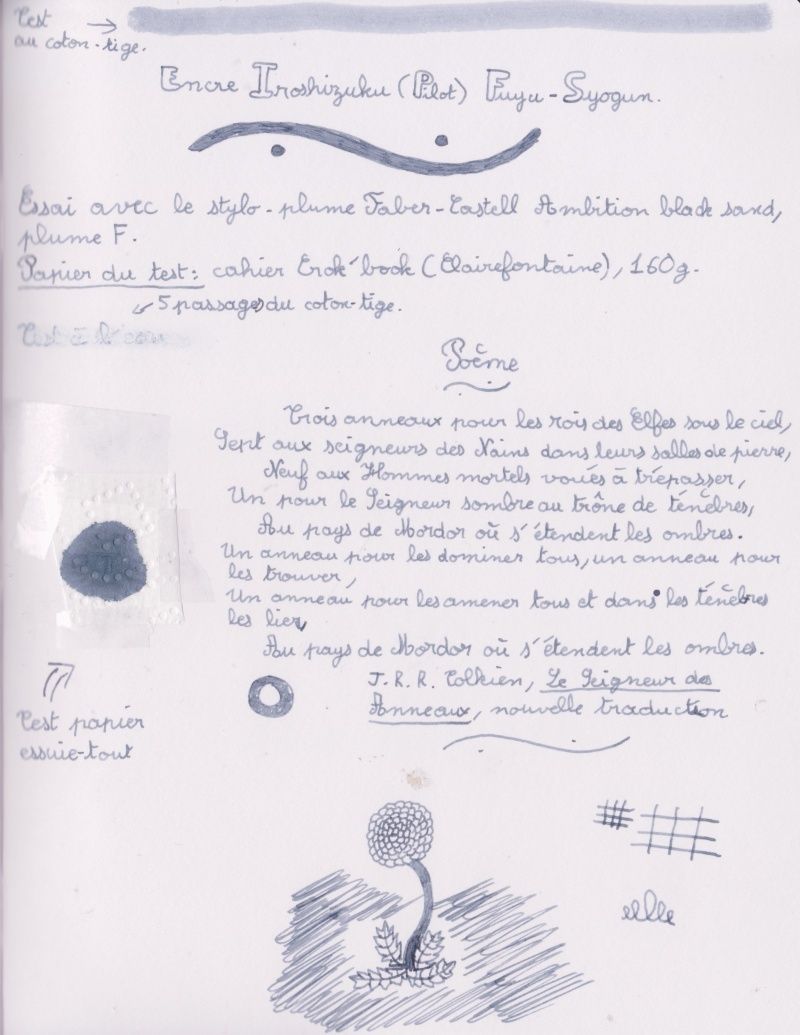 Test
au coton-tige.
Encre Iroshizuku (Pilot) Fuyu-Syogun.
Essai avec le stylo-plume Faber-Castell Ambition black sand,
plume F.
Papier du test: cahier Crok'book (Clairefontaine), 160g.
5 passages du coton-tige.
Test à l'eau
Poème
Trois anneaux pour les rois des Elfes sous le ciel,
Sept aux seigneurs des Nains dans leurs salles de pierre,
Neuf aux Hommes mortels voués à trépasser,
Un pour le Seigneur sombre au trône de ténèbres,
Au pays de Mordor où s'étendent les ombres.
Un anneau pour les dominer tous, un anneau pour
les trouver,
Un anneau pour les amener tous et dans les ténèbres
les lier,
Au pays de Mordor où s'étendent les ombres.
J.R.R. Tolkien, Le Seigneur des
Anneaux, nouvelle traduction
Test papier
essuie-tout